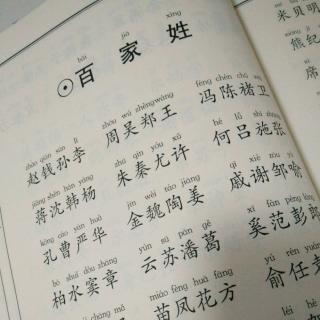 bǎi jiā xìng
⊙百家姓
zhào qián sūn lǐ zhōu wú zhèng wáng féng chén chǔ wèi
赵钱孙李 周吴郑王 冯陈褚卫
jiǎng shěn hán yáng zhū qín yóu xǔ hé lǚ shī zhāng
蒋沈韩杨 朱秦尤许 何吕施张
kǒng cáo yán huà jīn wèi táo jiāng qī xiè zōu yù
孔曹严华 金魏陶姜 戚谢邹喻
bó shuǐ dòu zhāng yún sū pān gě xī fàn péng láng
柏水窦章 云苏潘葛 奚范彭郎
miáo fèng huā fāng yú rén
苗凤花方 俞任
米贝明
熊纪
席